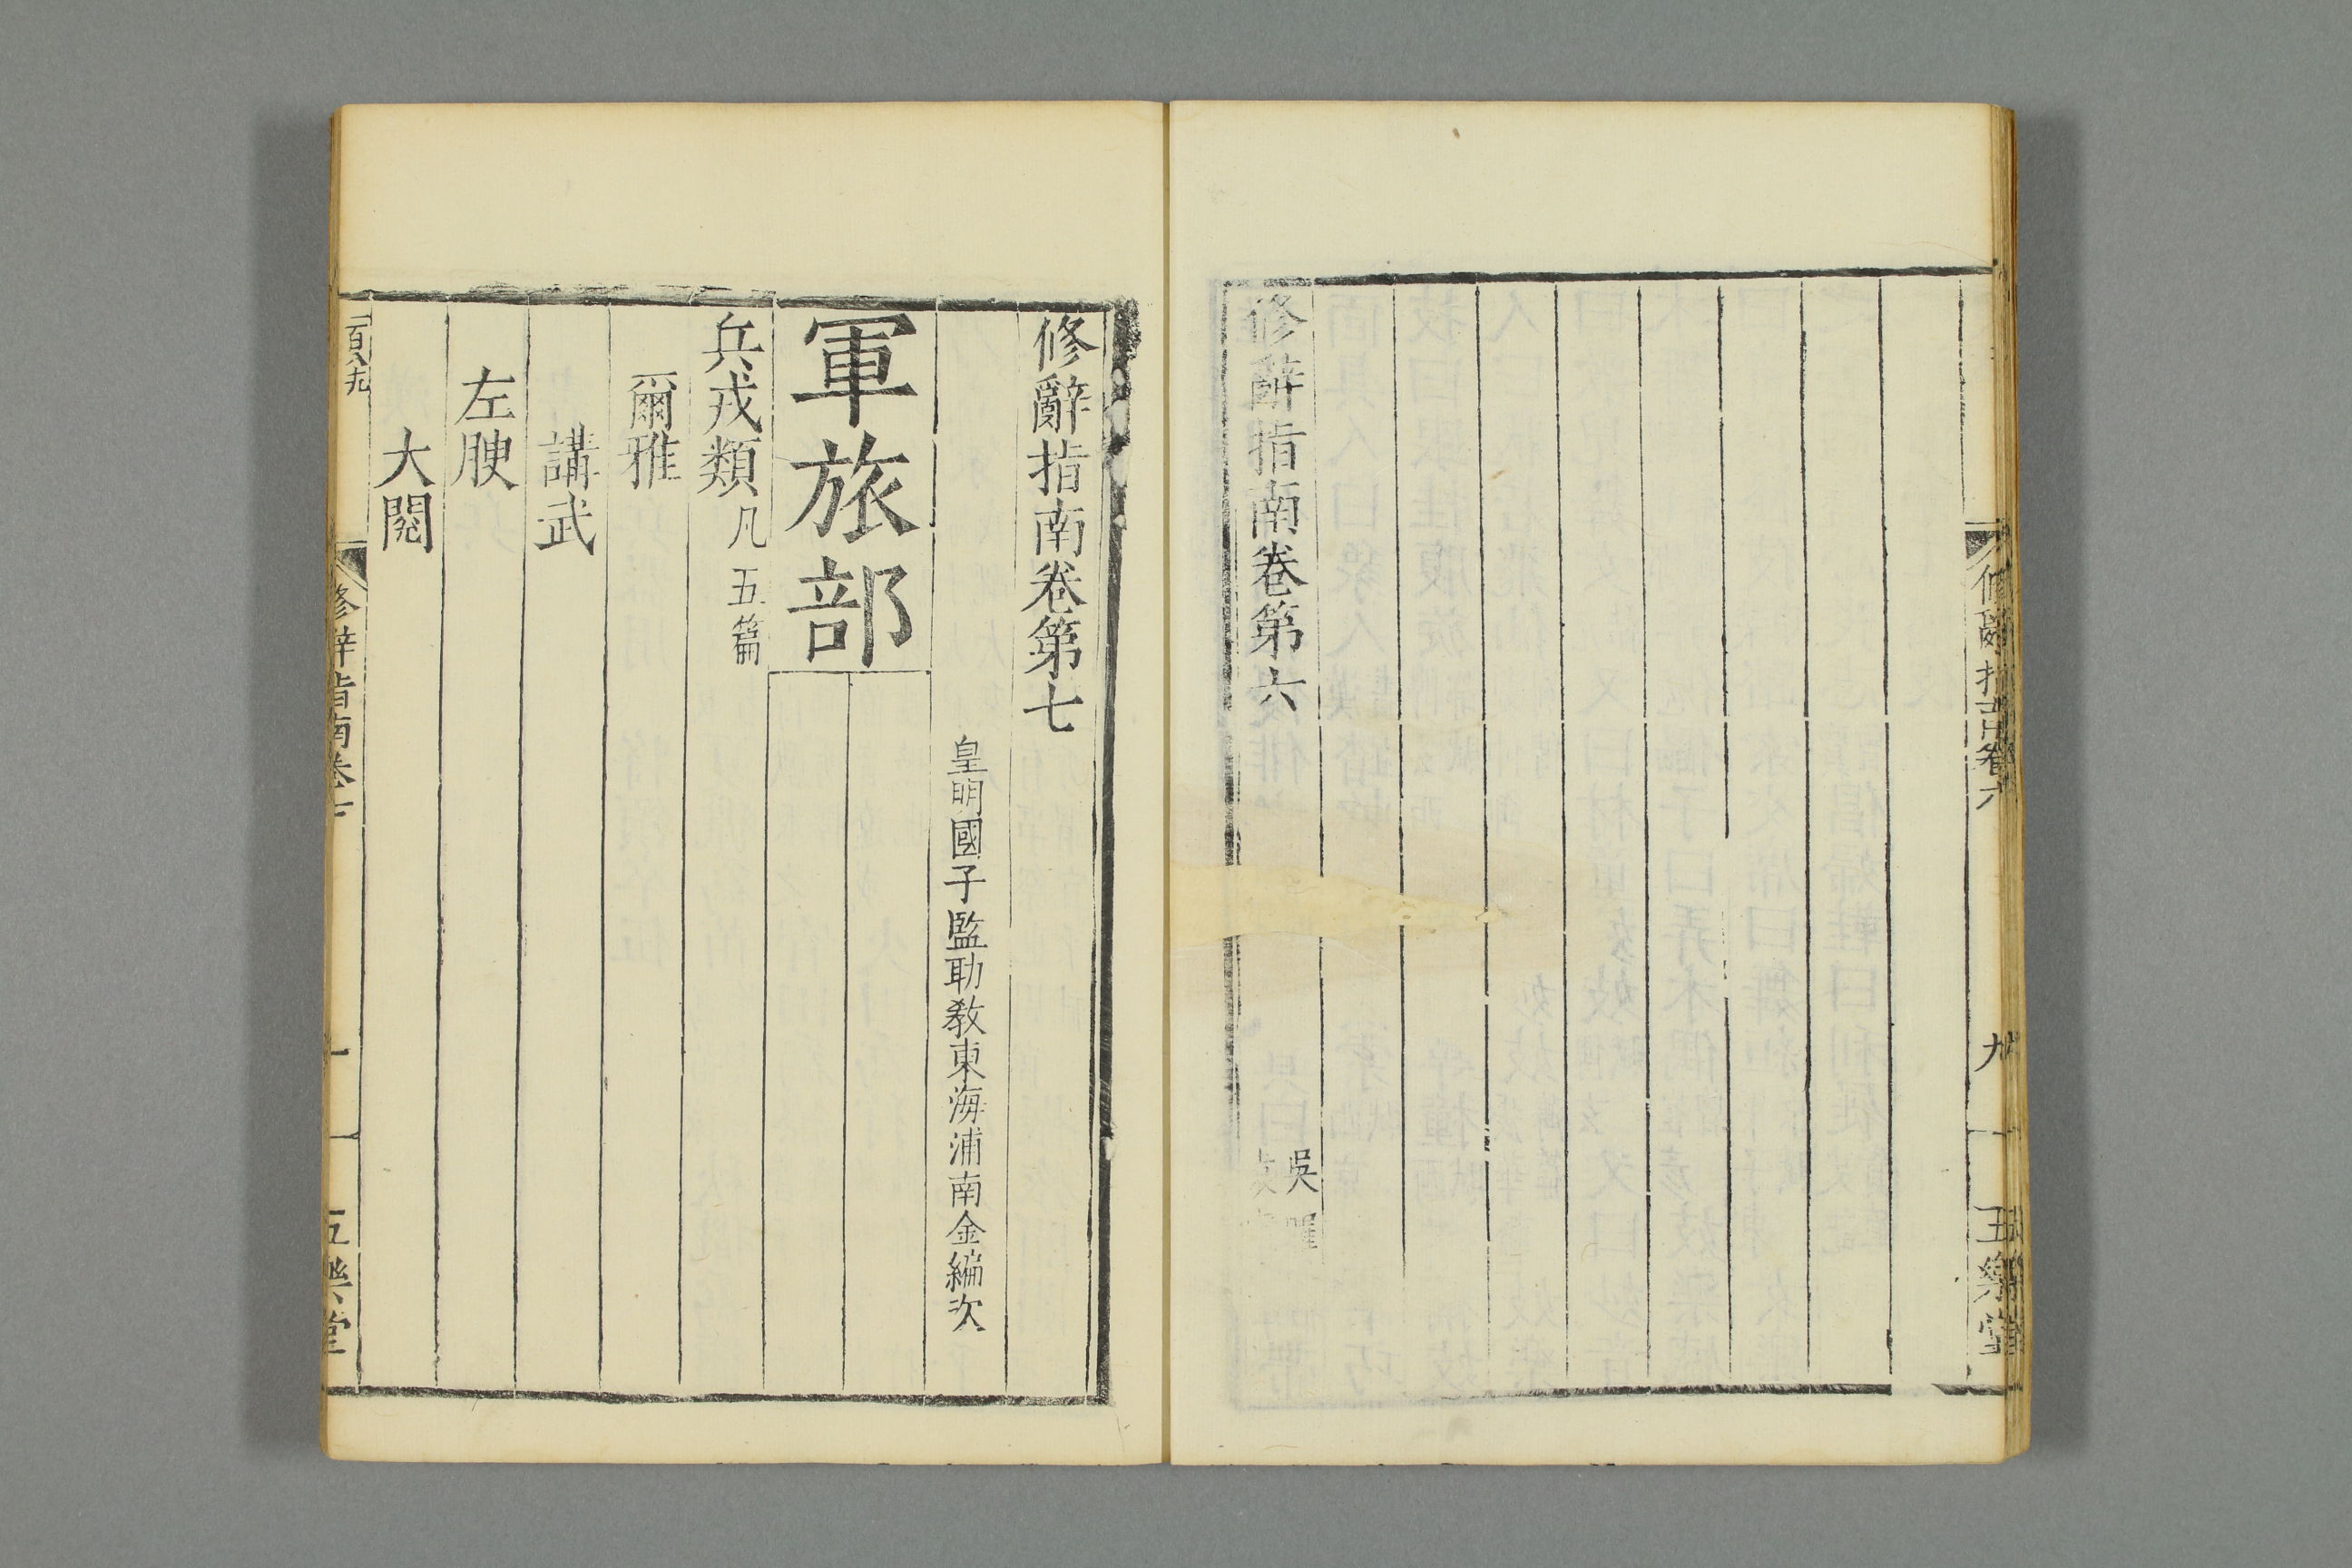 修辭指南卷六
九
五樂堂
修辭指南卷第六
吳
修辭指南卷第七
皇明國子監助教東海浦南金編次
軍旅部
兵戎類凡五篇
爾雅
講武
左腴
大閱
修辭指南卷七
一
五樂堂